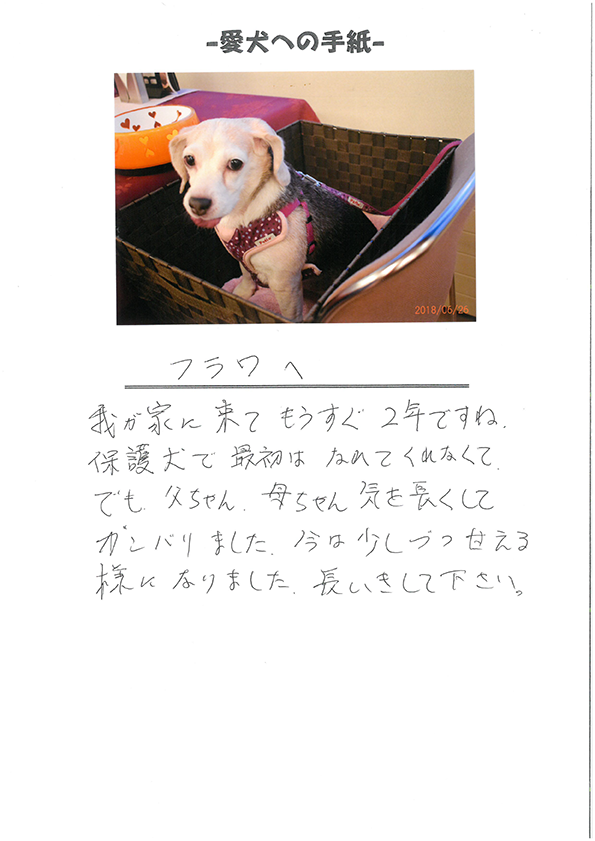 -愛犬への手紙-
2018/05/26
フラワへ
我が家に来てもうすぐ2年ですね.
保護犬で最初はなれてくれなくて.
でも.父ちゃん.母ちゃん気を長くして
ガンバリました.今は少しづつ甘える
様になりました.長いきして下さい。